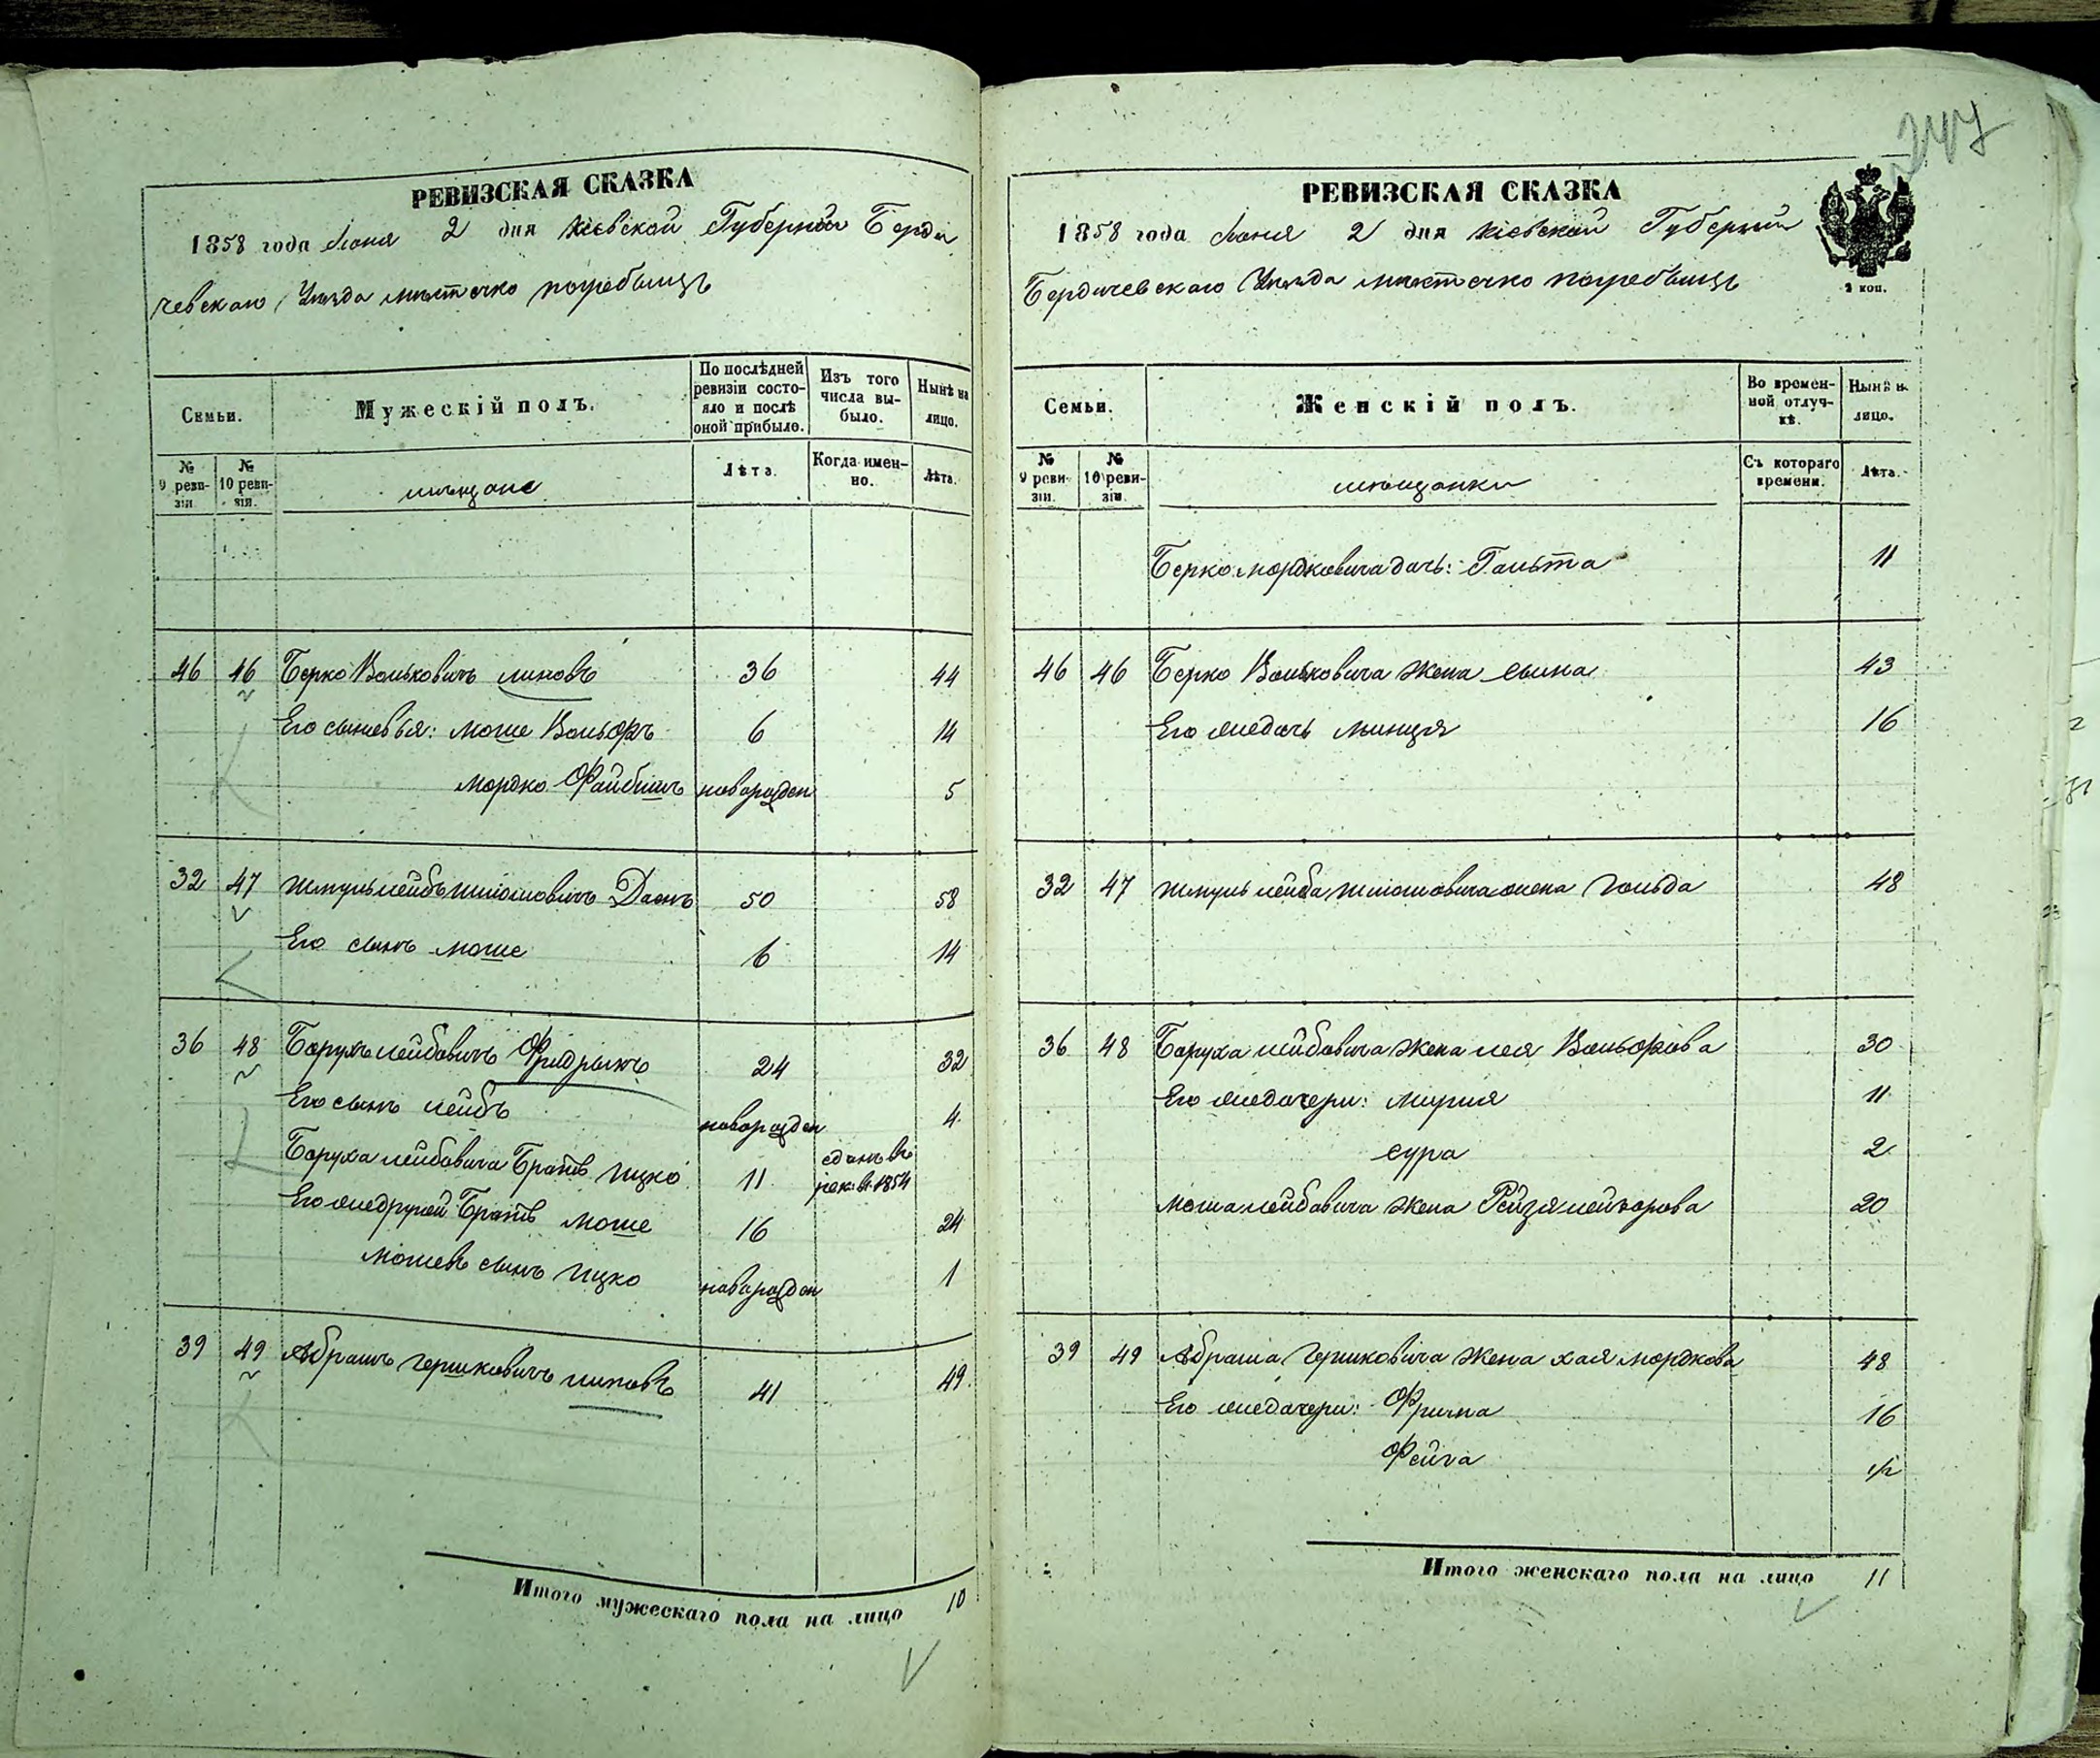 247
РЕВИЗСКАЯ СКАЗКА
1858 года Іюня 2 дня Кіевской Губерніи Берди
чевскаго Уезда местечко погребыщъ
Семьи.
Мужескій полъ.
По послѣдней ревизіи состо-
яло и послѣ
оной прибыло.
Изъ того
числа вы-
было.
Нынѣ на
лицо.
№
9 реви-
зіи.
№
10 реви-
зіи.
мещане
Лѣта.
Когда имен-
но.
Лѣта.
46 46 Берко Вольковичъ линовъ 36 44
Его сыневья: моше Вольфъ 6 14
мордко Файбишъ новорожден 5
32 47 Шмуль лейбъ шліомовичъ Даонъ 50 58
Его сынъ моше 6 14
36 48 Борухъ лейбовичъ Фридрынъ 24 32
Его сынъ лейбъ новорожден 4
Боруха лейбовича Братъ ицко 11 сданъ въ
рек: въ 1854
Его же другой Братъ моше 16 24
мошевъ сынъ ицко новорожден 1
39 49 Абрамъ гершковичъ липовъ 41 49
Итого мужескаго пола на лицо 10
РЕВИЗСКАЯ СКАЗКА
1858 года Іюня 2 дня Кіевской Губерніи
Бердичевскаго Уезда местечко погребыщъ
2 коп.
Семьи.
Женскій полъ.
Во времен-
ной отлуч-
кѣ.
Нынѣ н.
лицо.
№
9 реви-
зіи.
№
10 реви-
зіи.
мещанки
Съ котораго
времени.
Лѣта.
Берко мордковича дочь: Гольта 11
46 46 Берко Вольковича жена сына 43
Его же дочь минця 16
32 47 Шмуль лейба шліомовича жена гольда 48
36 48 Боруха лейбовича жена лея Вольфова 30
Его же дочери: мирия 11
сура 2
моша лейбовича жена Рейзя лейзорова 20
39 49 Абрама гершковича жена хая мордкова 48
Его же дочери: Фрима 16
Фейга 1/2
Итого женскаго пола на лицо 11